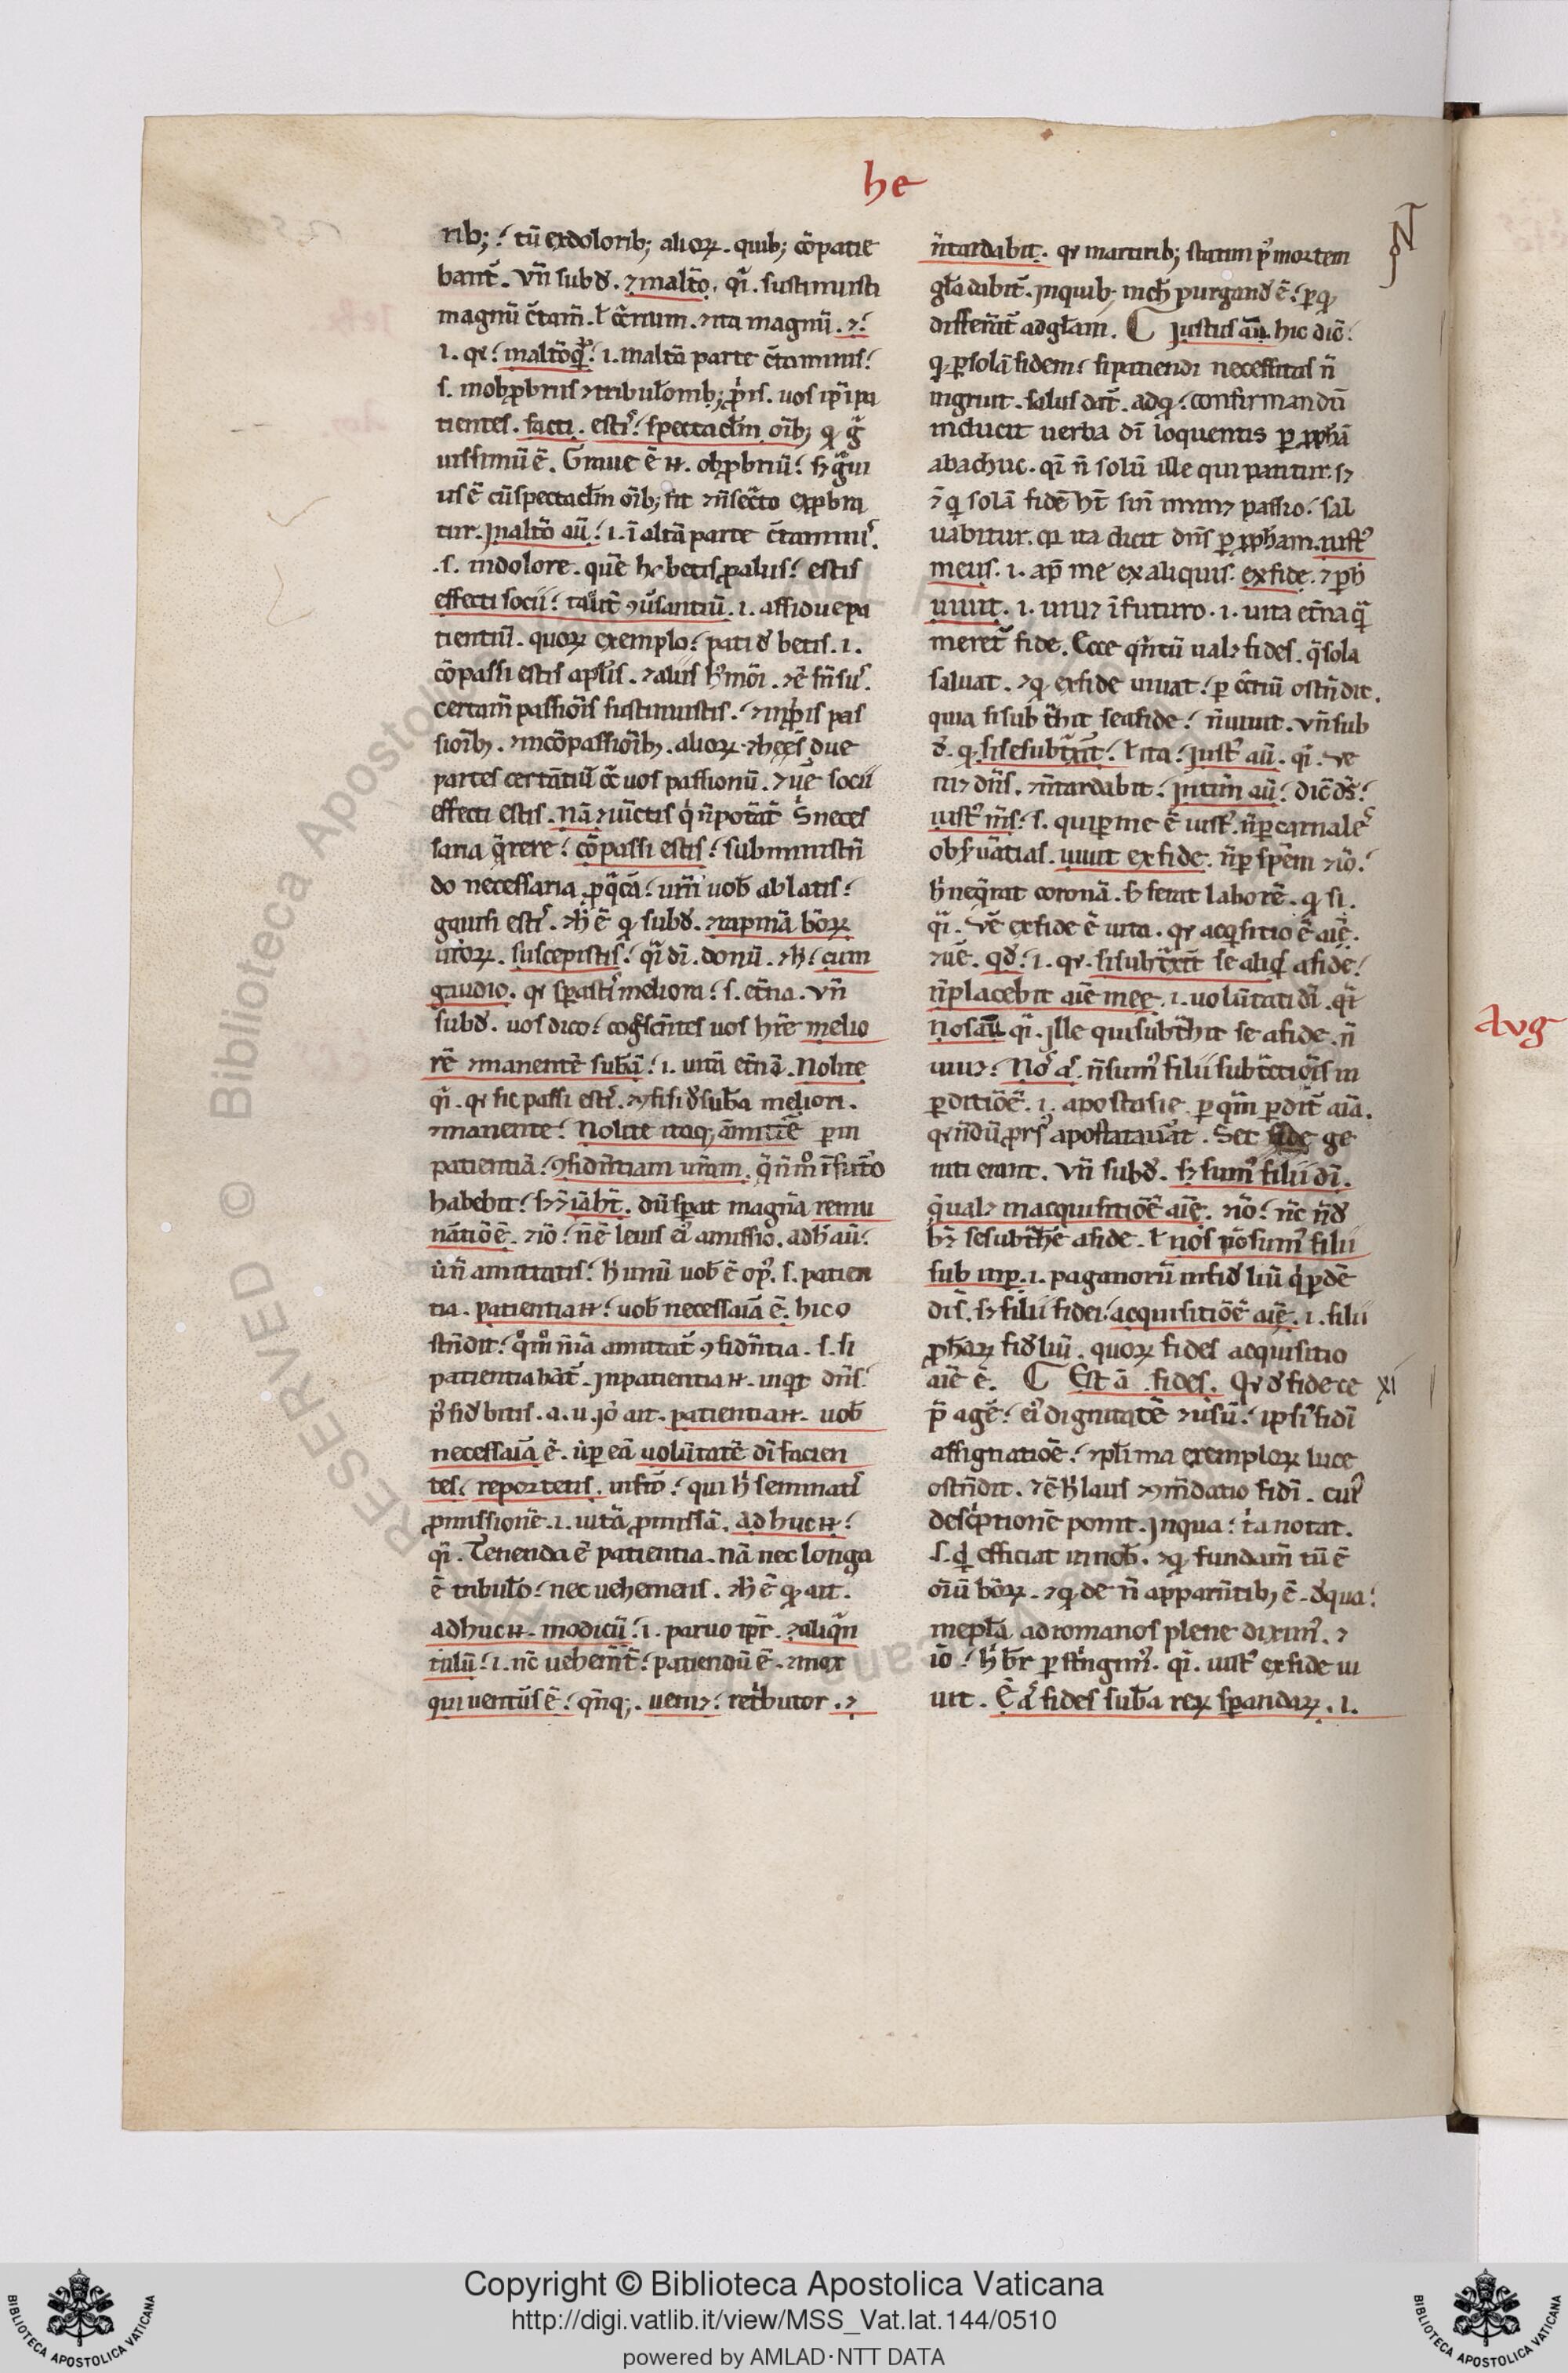 he
rib; tū ex dolorib; alioꝝ. quib; cōpatie
bant᷑. Vn̄ subd̄. ⁊ in alt̄o. qͥ. sustinuisti
magnū c̄tam̄. ł c̄tīnum. ⁊ ita magnū. ⁊
.i. qꝛ in alt̄o qͥd̄. i. in alt̄a parte c̄taminis
.s. in obꝓbriis ⁊ tribul̄onib; ꝓͥis. uos ip̄i pa
tientes. facti. estis spectacl̄m oīb; qͥ g̃
uissimū ē. Graue ē .n. obꝓbriū sꝫ g̃ui
us ē cū spectacl̄m oīb; fit ⁊ n̄ sec̄to exꝓbra
tur. In alt̄o aū .i. ī alt̄a parte c̄taminis.
.s. in dolore. quē
effecti socii talit᷑ ꝯūsantiū. i. assidue pa
tientiū. quoꝝ exemplo pati debetis. i.
cōpassi estis apl̄is. ⁊ aliis h̄moī. ⁊ ē sn̄sus.
certam̄ passiōis sustinuistis. ⁊ in ꝓͥis pas
siōib;. ⁊ in cōpassiōib;. alioꝝ. ⁊ hee s̄ due
partes ⁊ ue socii
effecti estis. Nā ⁊ uīctis qͥ n̄ pot̄āt s̄ neces
saria q̃rere cōpassi estis subministrā
do necessaria. uob̄ ablatis
gauisi estis. ⁊ h̄ ē qͥ subd̄. ⁊ rapinā bōꝝ
ūroꝝ. suscepistis qͥ dī. donū. ⁊ h̄ cum
gaudio. qꝛ sꝑastis meliora .s. et̄na. Vn̄
subd̄. uos dico cog̃scēntes uos hr̄e melio
rē ⁊ manentē sub̄ā .i. uitā et̄nā. Nolite
qͥ. qꝛ sic passi estis.
⁊ manente Nolite itaq; āmittē ꝑ in
patientiā ꝯfidn̄tiam ur̄am.
habebit dū sꝑat magn̄a remu
n̄atiōē. ⁊ iō n̄ ē leuis ei᷒ amissio. ad h̄ aū
ūn̄ amittatis h̄ unū uob̄ ē op᷒. s. patien
tia. patientia .n. uob̄ necessaria ē. hic o
stn̄dit qͦm̊ n̄ īa amittat᷑ ꝯfidn̄tia. s. si
patientia hāt᷑. In patientia .n. inqͥt dn̄s
. patientia .n. uob̄
necessaria ē. ūꝑ eā uolūtatē dī facien
tes reportetis. in fut̄o qui h̄ seminatis
ꝓmissionē. i. uitā ꝓmissā. ad huc .n.
qͥ. Tenenda ē patientia. nā nec longa
ē tribul̄o nec uehemens. ⁊ h̄ ē qͥ ait.
ad huc .n. modicū .i. paruo tp̄r. ⁊ aliqn̄
tulū .i. n̄c uehem̄t patiendū ē. ⁊ mox
qui uentūs ē qn̄q;. ueniꝫ ret̄butor. ⁊
n̄ tardabit. qꝛ martirib; statim p᷒ mortem
gl̄a dabit᷑. In quib; inch̄ purgand̄ ē
differūt᷑ ad gl̄am. Iustus aū. hic dic̄
qͥ ꝑ solā fidem si patiendi necessitas n̄
ingruit. salus dat᷑. ad qͥ confirmandū
inducit uerba dī loquentis ꝑ ꝓph̄ā
abachuc. qͥ n̄ solū ille qui patitur. sꝫ
⁊ qͥ solā fidē h̄t sal
uabitur. qꝛ ita dicit dn̄s ꝑ ꝓph̄am. iust᷒
meus. i. ap̄ me ex aliquis. ex fide. ⁊ ꝑ h̄
uiuit. i. uiuꝫ ī futuro. i. uita et̄na qͣ
meret᷑ fide. Ecce qn̄tū ualꝫ fides. q̃ sola
saluat. ⁊ qͥ ex fide uiuat ꝑ c̄tiū ostn̄dit.
quia si subt̄hit se a fide n̄ uiuit. Vn̄ sub
d̄. qͥ si se subt̄xit ł ita iust᷒ aū. qͥ. Ve
niꝫ dn̄s. ⁊ n̄ tardabit Int̄im aū dic̄ ds̄
iust᷒ m̄s .s. qui ꝑ me ē iust᷒. n̄ ꝑ carnales
obs̄uātias. uiuit ex fide. n̄ ꝑ spēm ⁊ iō
h̄ neq̃rat coronā. s̄ ferat laborē. qͥ si.
qͥ. Vē ex fide ē uita. qꝛ acqͥsitio ē aīe.
⁊ uē. qd̄ .i. qꝛ. si subt̄xit se aliqͥ a fide
n̄ placebit aīe mee. i. uolūtati dī. qͥ
Nos aū qͥ. Ille qui subt̄hit se a fide. n̄
uiuꝫ Nos aū. n̄ sum᷒ filii subt̄ctiōis in
ꝑditiōē. i. apostasie. ꝑ qͣm ꝑdit᷑ aīa.
qꝛ n̄dū ꝓrs᷒ apostatauāt. Set ge
niti erant. Vn̄ subd̄. sꝫ sum᷒ filii dī.
q̃ ualꝫ in acquisitiōē aīe. ⁊ iō n̄c n̄ d̄
bꝫ se subt̄he a fide. ł nos nō sum᷒ filii
sub inꝑ. i. paganorū infid̄liū qͥ ꝑdē
dis̄. sꝫ filii fidei acquisitiōē aīe. i. filii
ꝓph̄aꝝ fid̄liū. quoꝝ fides acquisitio
aīe ē. Est ā fides. Qꝛ d̄ fide ce
p̄ age ei᷒ dignitatē ⁊ ūsū
assignatiōe ⁊ pl̄ima exemploꝝ luce
ostn̄dit. ⁊ ē h̄ laus ⁊ ꝯm̄datio fidī. cui᷒
desc̄ptionē ponit. In qua t̄a notat.
.s. qͥ efficiat in nob̄. ⁊ qͥ fundam̄tū ē
oīū bōꝝ. ⁊ qͥ de n̄ apparn̄tib; ē. d̄ qua
in epl̄a ad romanos plene dixim᷒. ⁊
iō h̄ br̄ ꝑstn̄gim᷒. qͥ. iust᷒ ex fide ui
uit. Ē aū fides sub̄a reꝝ sꝑandaꝝ. i.
xi
Aug
Copyright © Biblioteca Apostolica Vaticana
http://digi.vatlib.it/view/MSS_Vat.lat.144/0510
powered by AMLAD·NTT DATA
BIBLIOTECA APOSTOLICA VATICANA
BIBLIOTECA APOSTOLICA VATICANA